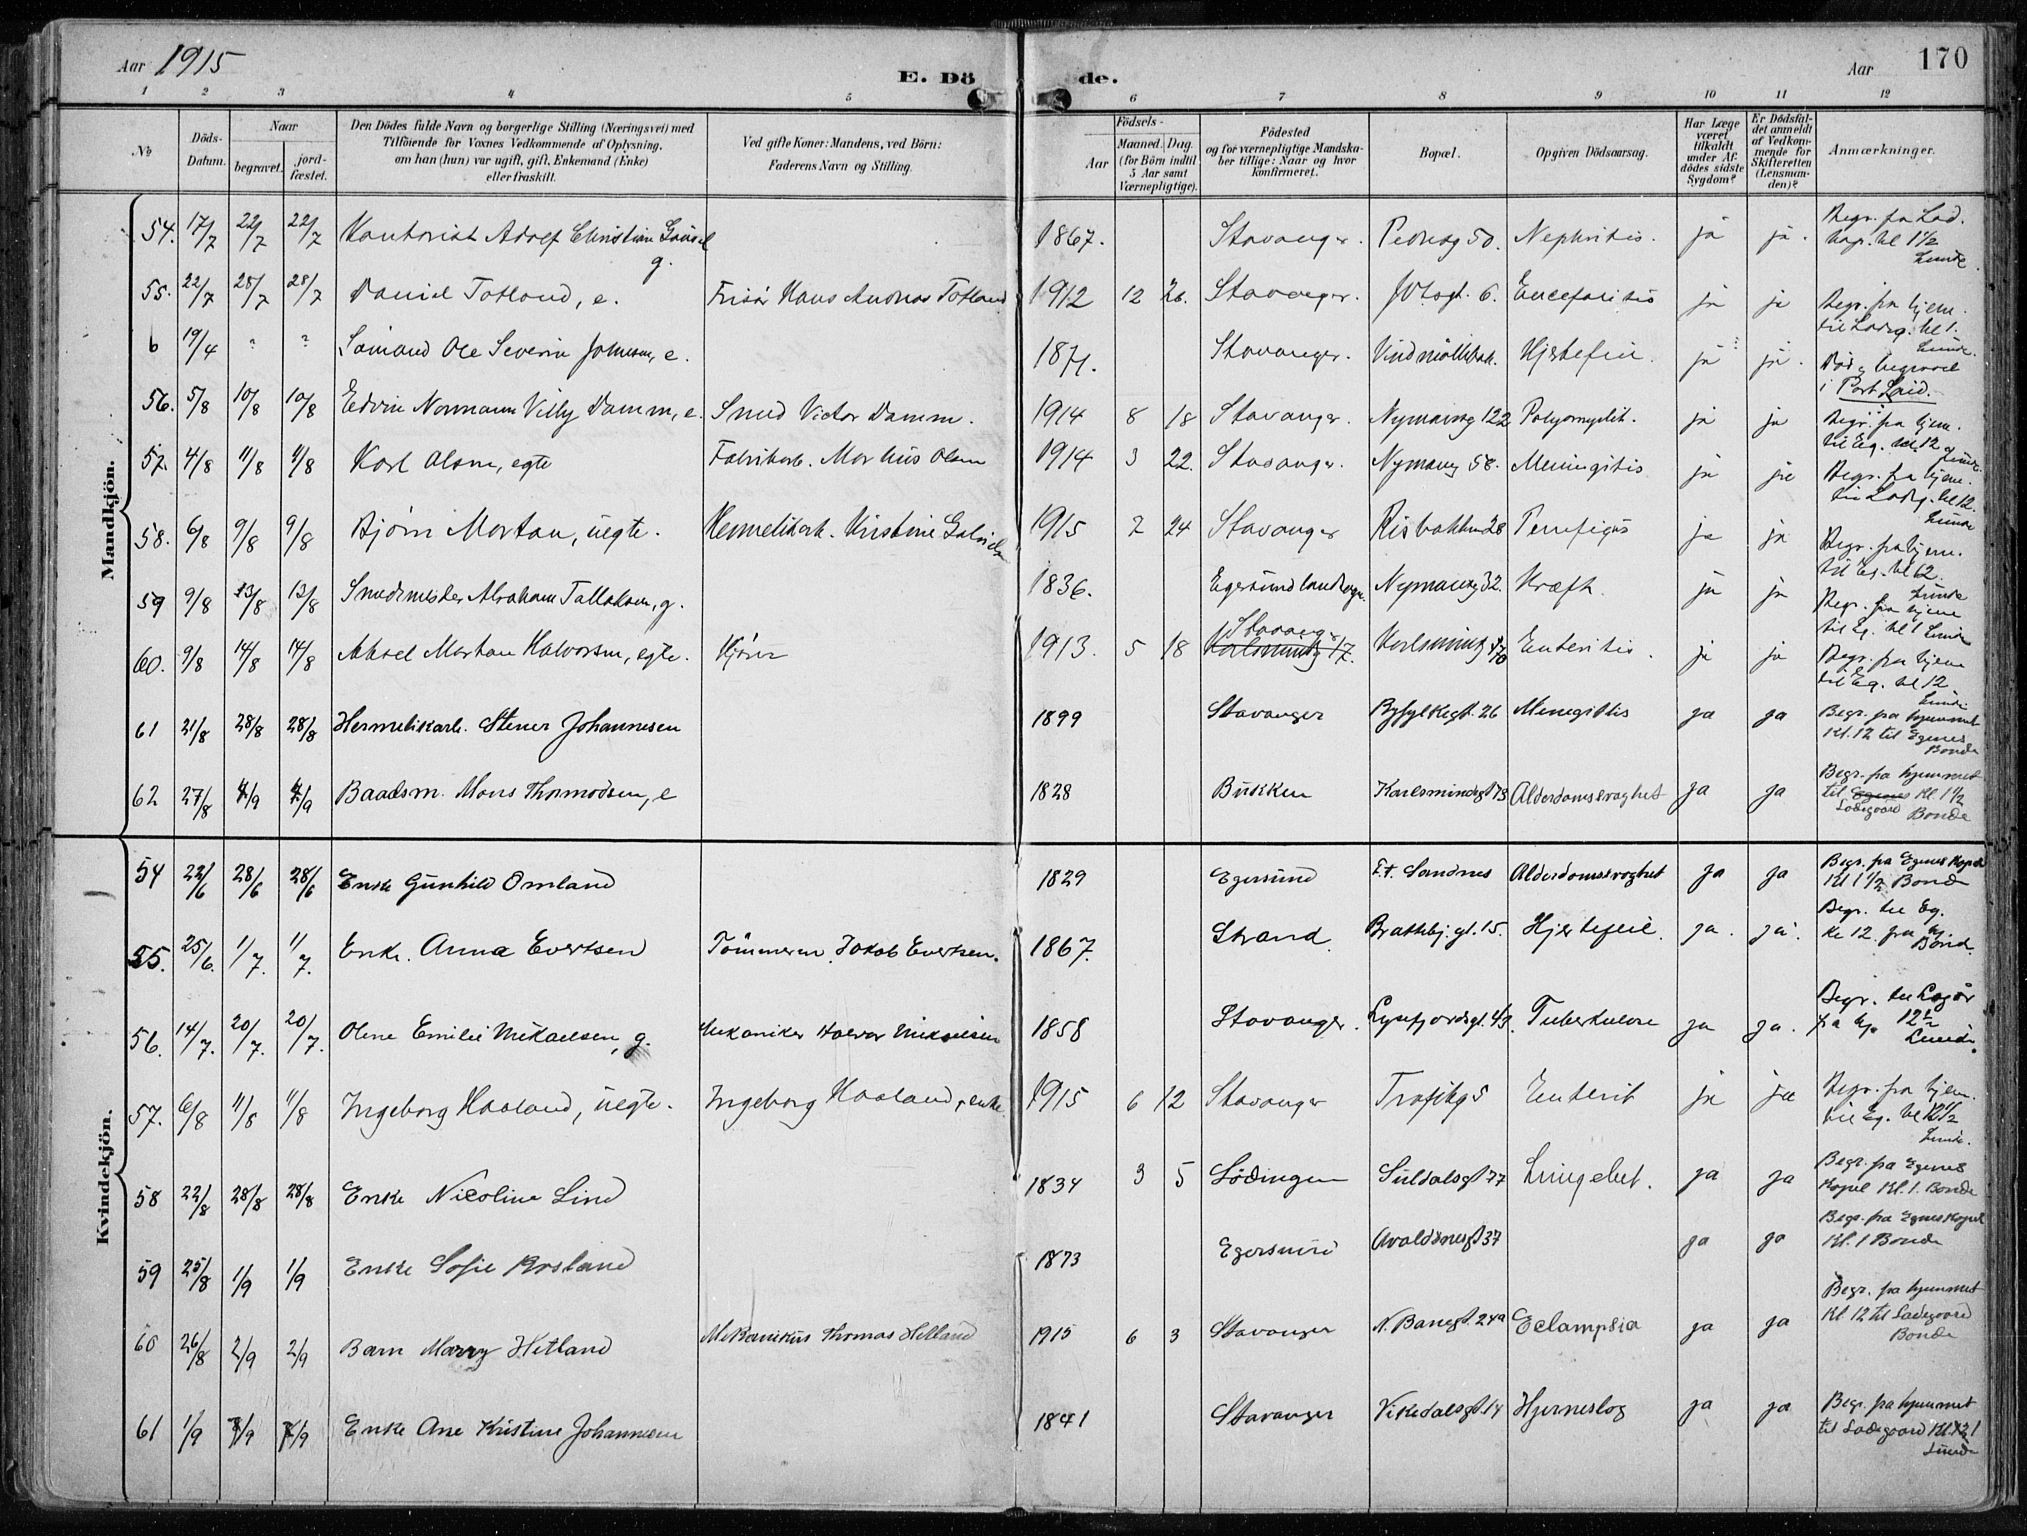 Aar 1915
E. Dö de.
Aar 170
1 2 3 4 5 6 7 8 9 10 11 12
No
Döds-Datum.
Naar
begravet.
jord-fæstet.
Den Dödes fulde Navn og borgerlige Stilling (Næringsvei) med
Tilföiende for Voxnes Vedkommende af Oplysning,
om han (hun) var ugift, gift, Enkemand (Enke)
eller fraskilt.
Ved gifte Koner: Mandens, ved Börn:
Faderens Navn og Stilling.
Födsels-
Aar
Maaned. Dag.
(for Börn indtil
5 Aar samt
Værnepligtige).
Födested
og for værnepligtige Mandska-
ber tillige: Naar og hvor
konfirmeret.
Bopæl.
Opgiven Dödsaarsag.
Har Læge
været
tilkaldt
under Af-
dödes sidste
Sygdom?
Er Dödsfal-
det anmeldt
af Vedkom-
mende for
Skifteretten
(Lensman-
den)?
Anmærkninger.
Mandkjön.
54. 17/7 22/7 22/7 Kontorist Adolf Christian Gausel g. 1867. Stavanger. Pedersg 50. Nephritis. ja ja. Begr. fra Lad. kap. kl 1 1/2 Lunde.
55. 22/7 28/7 28/7 Daniel Totland, e. Frisør Hans Andreas Totland 1912 12 26. Stavanger. 6. Encefalitis ja ja Begr. fra hjem. til Ladg. kl 1. Lunde.
6 19/4 ? ? Sömand Ole Severin Johnsen, e. 1871. Stavanger. Vindmöllebak. Hjertefeil. ja ja. Död og begravet i Port Said.
56. 5/8 10/8 10/8 Edvin Normann Villy Damm, e. Smed Victor Damm. 1914 8 18 Stavanger. Nymansvg 122 Polyomyelit. ja ja Begr. fra hjem. til Eg. kl. 12 Lunde.
57. 4/8 11/8 11/8 Karl Olsen, egte Fabrikarb. Markus Olsen 1914 3 22. Stavanger. Nymansvg 58. Meningitis ja ja Begr. fra hjem. til Ladg. kl 12. Lunde
58. 6/8 9/8 9/8 Bjørn Morton, uegte. Hermetikarb. Kristine 1915 2 24 Stavanger Risbakken 28 Pemfigus ja ja Begr. fra hjem. til Eg. kl 12. Lunde
59 9/8 13/8 13/8 Smedmester Abraham Tallaksen, g. 1836. Egersund landsogn. Nymansvg 32. Kræft. ja ja Begr. fra hjem til Eg. kl 1 Lunde
60. 9/8 14/8 14/8 Aksel Morton Halvorsen, egte. Kjører 1913. 5 18 Stavanger Karlsmindg 17. Karlsmindg Enteritis. ja ja Begr. fra hjem til Eg. kl 12 Lunde
61 21/8 28/8 28/8 Hermetikarb. Stener Johannesen 1899 Stavanger Ryfylkegt. 26 Menegittis ja ja Begr. fra hjemmet Kl. 12 til Egenes Bonde
62 27/8 4/9 4/9 Baadsm. Mons Thormodsen, e 1828 Bukken Karlsmindegt 73 Alderdomssvaghet ja ja Begr. fra hjemmet til Egenes Kl. 1 1/2 Ladegaard Bonde
Kvindekjön.
54 22/6 28/6 28/6 Enke Gunhild Omland 1829 Egersund Et. Sandnes Alderdomssvaghet ja ja Begr. fra Egenes Kapel Kl 1 1/2 Bonde
55. 25/6. 1/7. 1/7. Enke. Anna Evertsen Tömmerm. Jakob Evertsen. 1867. Strand. Brattebj. gt. 15. Hjertefeil. ja. ja. Begr. til Eg. kl 12. fra hj. Bonde.
56. 14/7. 20/7. 20/7. Oline Emilie Mikaelsen, g. Mekaniker Halvor Mikaelsen 1858 Stavanger. Lysefjordsgt. 43. Tuberkulose ja ja. Begr. til Lagår fra hj. 12 1/2 Lunde.
57. 6/8 11/8 11/8 Ingeborg Haaland, uegte. Ingeborg Haaland, enke. 1915 6 12 Stavanger Trafikg 5 Enterit ja ja Begr. fra hjem. til Eg. kl 12 1/2 Lunde.
58 22/8 28/8 28/8 Enke Nicoline Lind 1834 3 5 Lödingen Suldalsgt 77 Lungebet. ja ja Begr. fra Egenes Kapel Kl. 1. Bonde
59 25/8 1/9 1/9 Enke Sofie Rosland 1873 Egersund Avaldsnesgt 37 ja ja Begr. fra Egenes Kapel Kl. 1 Bonde
60 26/8 2/9 2/9 Barn Marry Hetland Mekanikus Thomas Hetland 1915 6 3 Stavanger N. Banegt. 24a Eclampsia ja ja Begr. fra hjemmet Kl 12 til Ladegaard Bonde
61 1/9 7/9 7/9 Enke Ane Kristine Johannesen 1841 Stavanger Vikedalsgt 14 Hjerneslag ja ja Begr. fra hjemmet til Ladegaard Kl. 1 Lunde